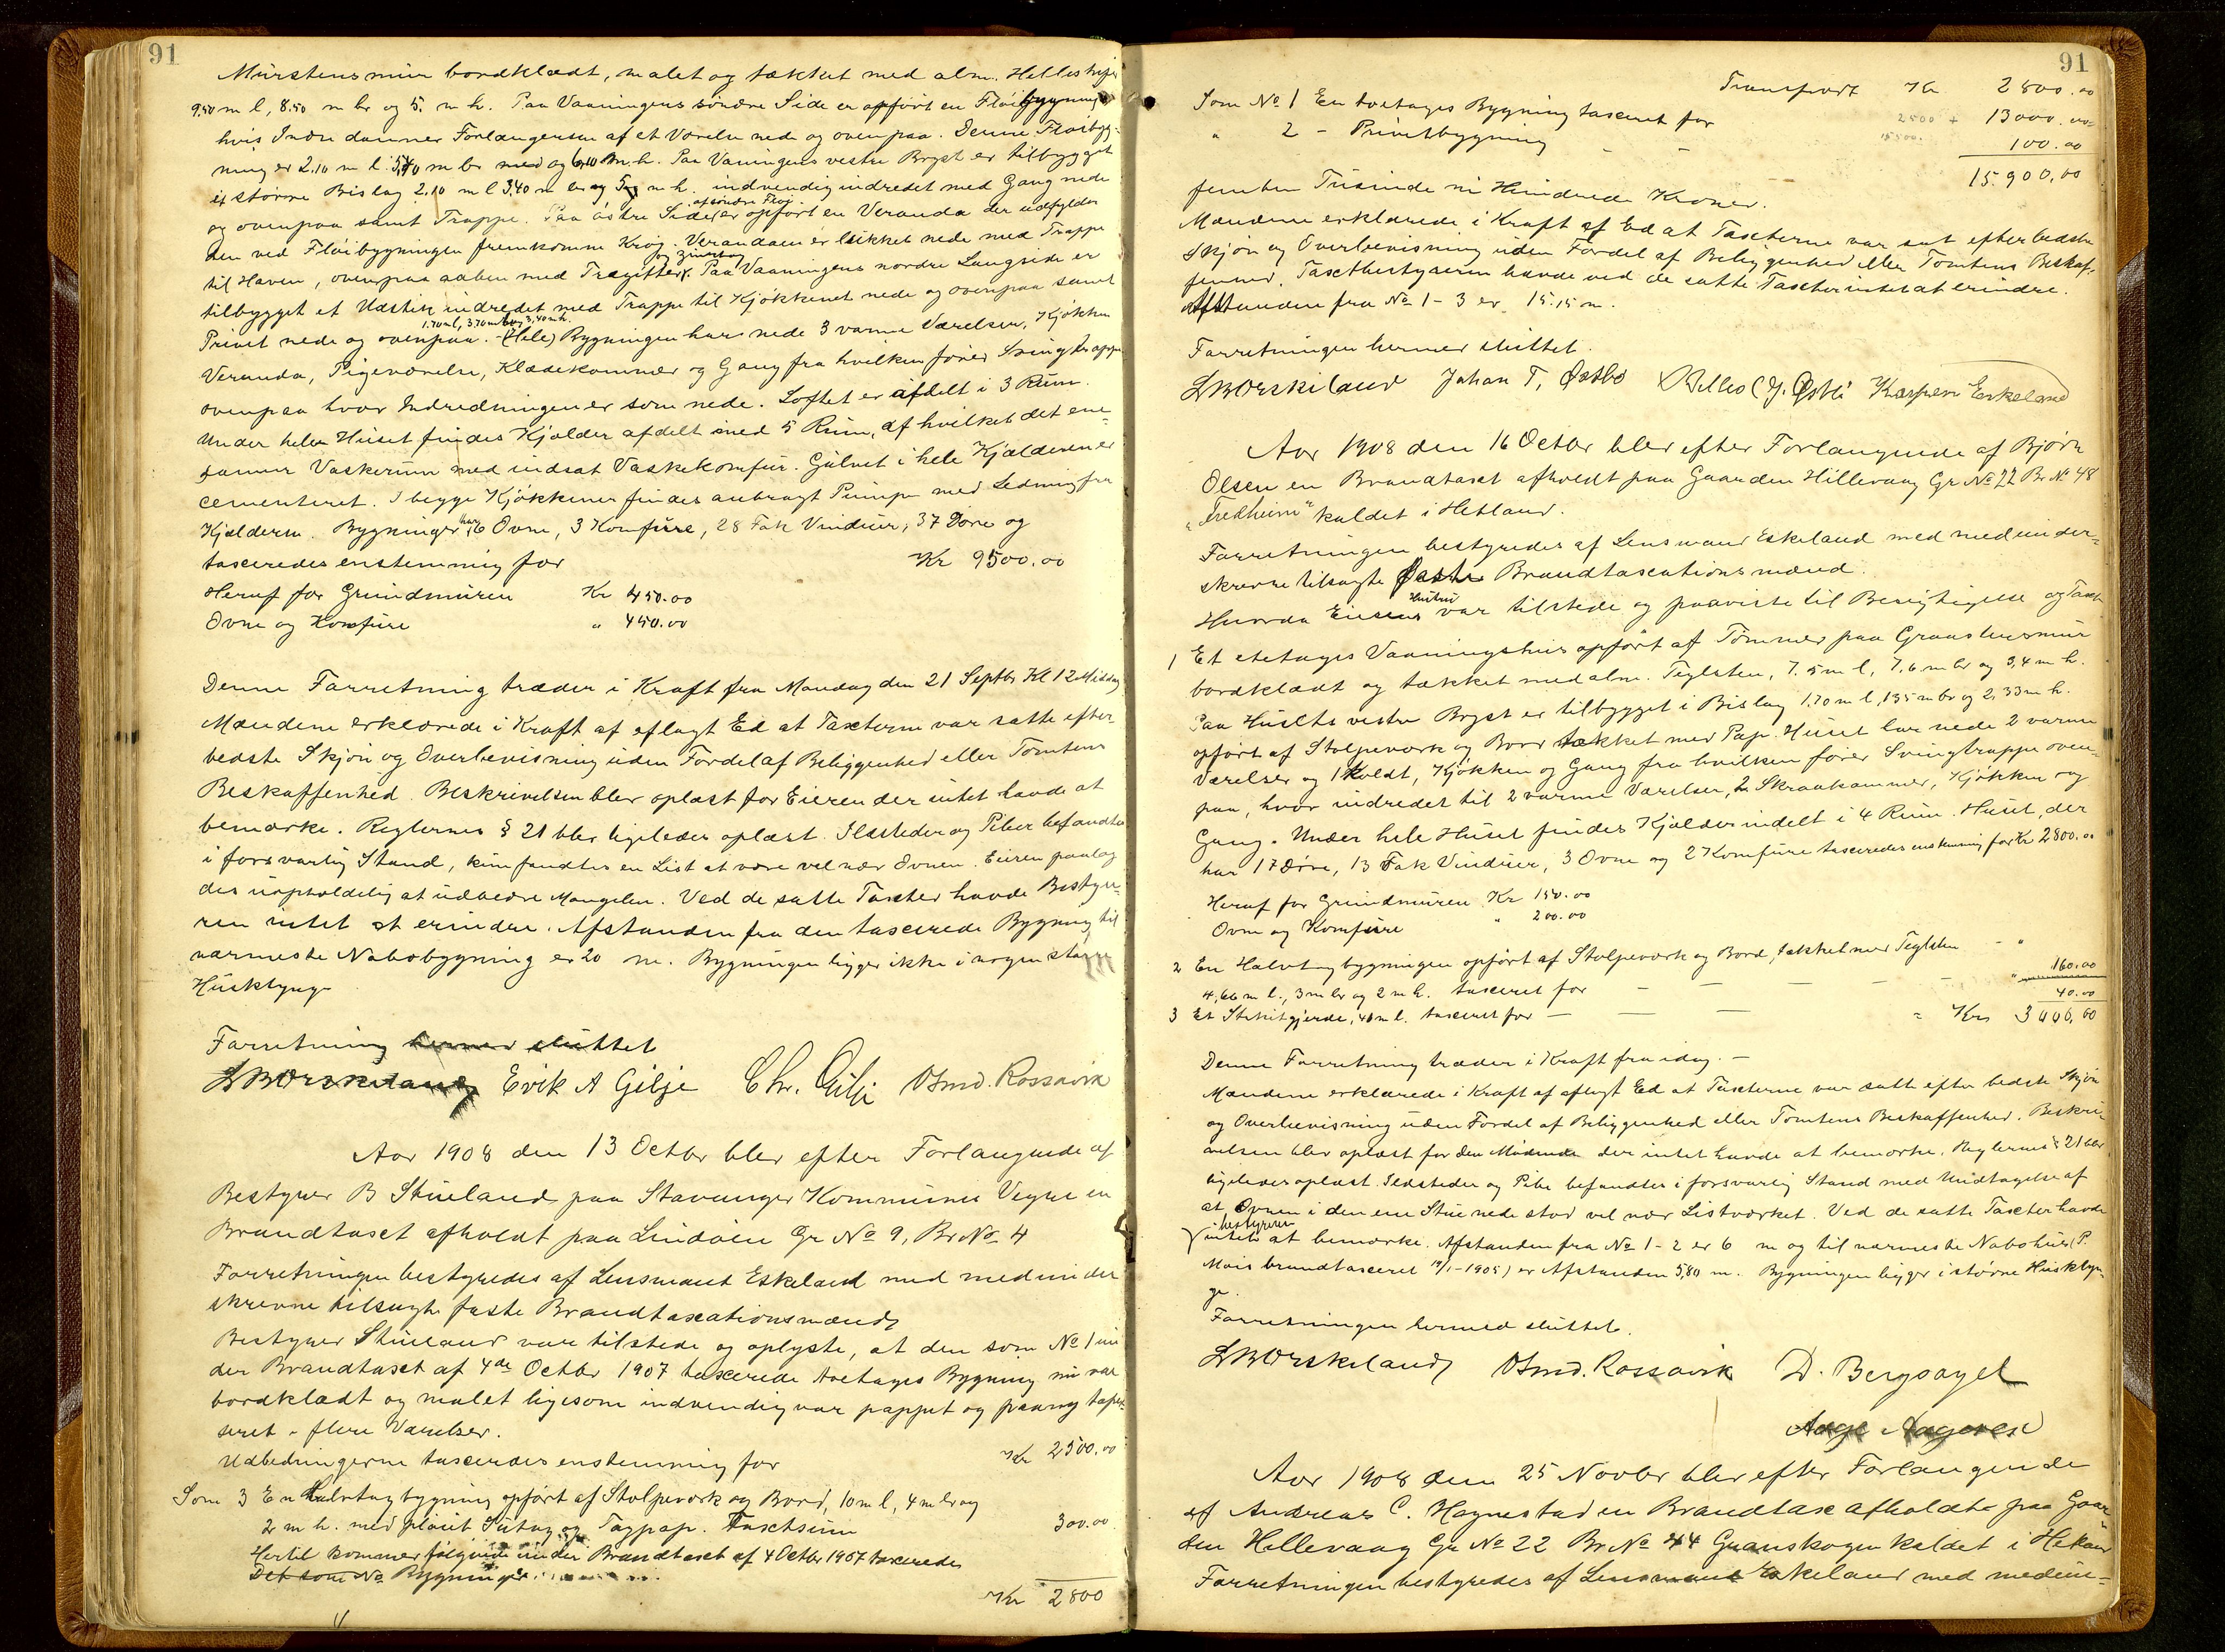 91
Murstensmur bordklædt, malet og tækket med alm. Helleskifer
9.50 m l, 8.50 m br og 5. m h. Paa Vaaningens söndre Side er opfört en Flöibygning
hvis Indre danner Forlængelsen af et Værelse nede og ovenpaa. Denne Flöibyg-
ning er 2.10 m l. m br med og m h. Paa Vaningens vestre Bryst er tilbygget
et större Bislag 2.10 m l 3.40 m br og m h. indvendig indredet med Gang nede
og ovenpaa samt Trappe. Paa östre Side af söndre Flöi er opfört en Veranda der udfylder
den ved Flöibygningen fremkomne Krog. Verandaen er lukket nede med Trappe
til Haven, ovenpaa aaben med Trægitter og Zinktag. Paa Vaaningens nordre Langside er
tilbygget et Udstik indredet med Trappe til Kjökkenet nede og ovenpaa samt
Privet nede og ovenpaa. 1.70 m l, 3.70 m br og 3,40 m h. (Hele) Bygningen har nede 3 varme Værelser, Kjökken
Veranda, Pigeværelse, Klædekammer og Gang fra hvilken förer Svingtrappe
ovenpaa hvor Indredningen er som nede. Loftet er afdelt i 3 Rum.
Under hele Huset findes Kjælder afdelt med 5 Rum, af hvilket det ene
danner Vaskerum med indsat Vaskekomfur. Gulvet i hele Kjælderen er
cementeret. I begge Kjökkener findes anbragt Pumpe med Ledning fra
Kjælderen. Bygningen har 6 Ovne, 3 Komfure, 28 Fak Vinduer, 37 Döre og
taxeredes enstemmig for Kr 9500.00
Heraf for Grundmuren Kr 450.00
Ovne og Komfure " 450.00
Denne Forretning træder i Kraft fra Mandag den 21 Septbr Kl 12 Middag
Mændene erklærede i Kraft af aflagt Ed at Taxterne var satte efter
bedste Skjön og Overbevisning uden Fordel af Beliggenhed eller Tomtens
Beskaffenhed. Beskrivelsen blev oplæst for Eieren der intet havde at
bemærke. Reglernes § 21 blev ligeledes oplæst. Ildsteder og Piber befandtes
i forsvarlig Stand, kun fandtes en List at være vel nær Ovnen. Eieren paalag
des uopholdelig at udbedre Mangelen. Ved de satte Taxter havde Besty-
ren intet at erindre. Afstanden fra den taxerede Bygning til
nærmeste Nabobygning er 20 m. Bygningen ligger ikke i nogen större
Husklynge
Forretning hermed sluttet
LWOrskeland Erik A Gilje Chr. Gilje Osmd. Rossavik
Aar 1908 den 13 Octbr blev efter Forlangende af
Bestyrer B Stueland paa Stavanger Kommunes Vegne en
Brandtaxt afholdt paa Lindöen Gr No 9, Br No 4
Forretningen bestyredes af Lensmand Eskeland med medunder
skrevne tilsagte faste Brandtaxationsmænd
Bestyrer Stueland var tilstede og oplyste, at den som No 1 un
der Brandtaxt af 4de Octbr 1907 taxerede toetages Bygning nu var
bordklædt og malet ligesom indvendig var pappet og paany tape-
seret i flere Værelser.
Udbedringerne taxeredes enstemmig for Kr 2500.00
Som 3 En Halvtagbygning opfört af Stolpeværk og Bord, 10 m l, 4 m br og
2 m h. med plöiet Sutag og Tagpap. Taxtsum 300.00
Hertil kommer fölgende under Brandtaxt af 4 Octbr 1907 taxerede
Det som No Bygninger.
Kr 2800
91
Transport Kr 2800.00
Som No 1 En toetages Bygning taxeret for 2500 + 13000.00
" 2 - Privetbygning - - 15500. 100.00
15.900,00
femten Tusinde ni Hundrede Kroner.
Mændene erklærede i Kraft af Ed at Taxterne var sat efter bedste
Skjön og Overbevisning uden Fordel af Beliggenhed eller Tomtens Beskaf-
fenhed. Taxtbestyreren havde ved de satte Taxter intet at erindre.
Afstanden fra No 1 - 3 er 15.15 m.
Forretningen hermed sluttet.
LWOrskeland Johan T. Østbø J. Østbö Kaspar Eskeland
Aar 1908 den 16 Octbr blev efter Forlangende af Björn
Olsen en Brandtaxt afholdt paa Gaarden Hillevaag Gr No 22 Br No 48
"Fredheim" kaldet i Hetland.
Forretningen bestyredes af Lensmand Eskeland med medunder-
skrevne tilsagte faste Brandtaxationsmænd.
Eierens Hustru var tilstede og paaviste til Besigtigelse og Taxt
1 Et etetages Vaaningshus opfört af Tömmer paa Graastensmur
bordklædt og tækket med alm. Teglsten, 7.5 m l, 7,6 m br og 3,4 m h.
Paa Husets vestre Bryst er tilbygget i Bislag 1.70 m l, 1,35 m br og 2,33 m h.
opfört af Stolpeværk og Bord tækket med Pap. Huset har nede 2 varme
Værelser og 1 koldt, Kjökken og Gang fra hvilken förer Svingtrappe oven-
paa, hvor indredet til 2 varme Værelser, 2 Skraakammer, Kjökken og
Gang. Under hele Huset findes Kjælder inddelt i 4 Rum. Huset, der
har 17 Döre, 13 Fak Vinduer, 3 Ovne og 2 Komfure taxeredes enstemmig for Kr 2800.00
Heraf for Grundmuren Kr 150.00
Ovne og Komfure " 200.00
2 En Halvtagbygningen opfört af Stolpeværk og Bord, tækket med Teglsten - "
4,66 m l., 3 m br og 2 m h. taxeret for - - - - - " 160.00
3 Et Stakitgjerde, 40 m l. taxeret for - - - 40.00
" Krs 3000,00
Denne Forretning træder i Kraft fra idag. -
Mændene erklærede i Kraft af aflagt Ed at Taxterne var satte efter bedste Skjön
og Overbevisning uden Fordel af Beliggenhed eller Tomtens Beskaffenhed. Beskri-
velsen blev oplæst for den Mödende der intet havde at bemærke. Reglernes § 21 blev
ligeledes oplæst. Ildsteder og Pibe befandtes i forsvarlig Stand med Undtagelse af
at Ovnen i den ene Stue nede stod vel nær Listværket. Ved de satte Taxter havde
bestyreren intet at bemærke. Afstanden fra No 1 - 2 er 6 m og til nærmeste Nabohus (P.
Mois brandtaxeret 19/1 - 1905) er Afstanden 5,80 m. Bygningen ligger i större Husklyn-
ge.
Forretningen hermed sluttet.
LWOrskeland Osmd. Rossavik D. Bergsagel
Aage Aagesen
Aar 1908 den 25 Novbr blev efter Forlangende
af Andreas C. Hognestad en Brandtaxt afholdt paa Gaar-
den Hillevaag Gr No 22 Br No 44 Granskogen kaldet i Hetland
Forretningen bestyredes af Lensmand Eskeland med medun-